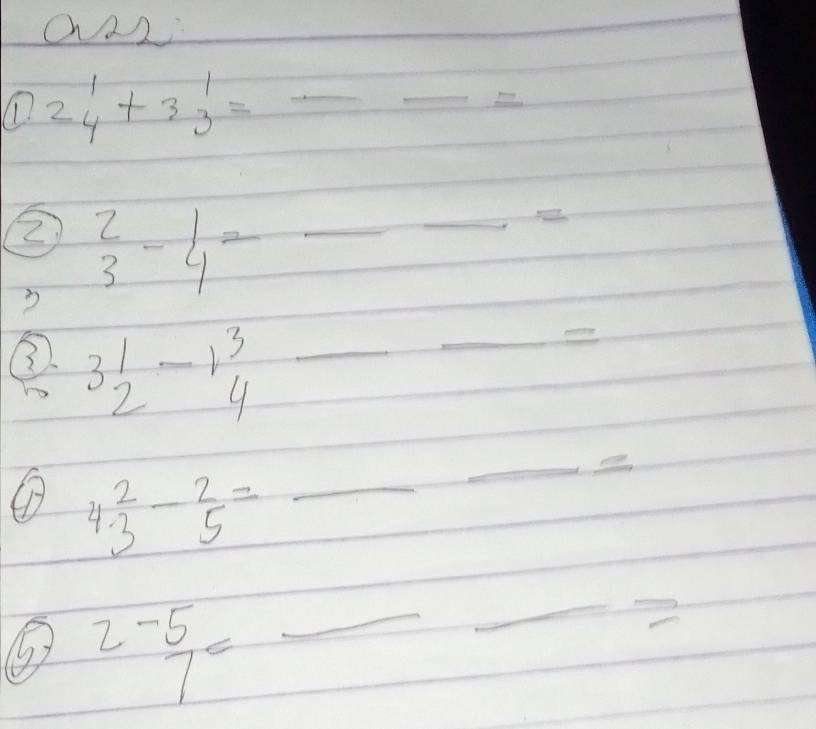 ① 2 1/4 + 3 1/3 = __ __ =
② 2/3 - 1/4 = __ __ =
③ 3 1/2 - 1 3/4 __ __ =
④ 4 2/3 - 2/5 = __ __ =
⑤ 2 - 5/7 = __ __ =